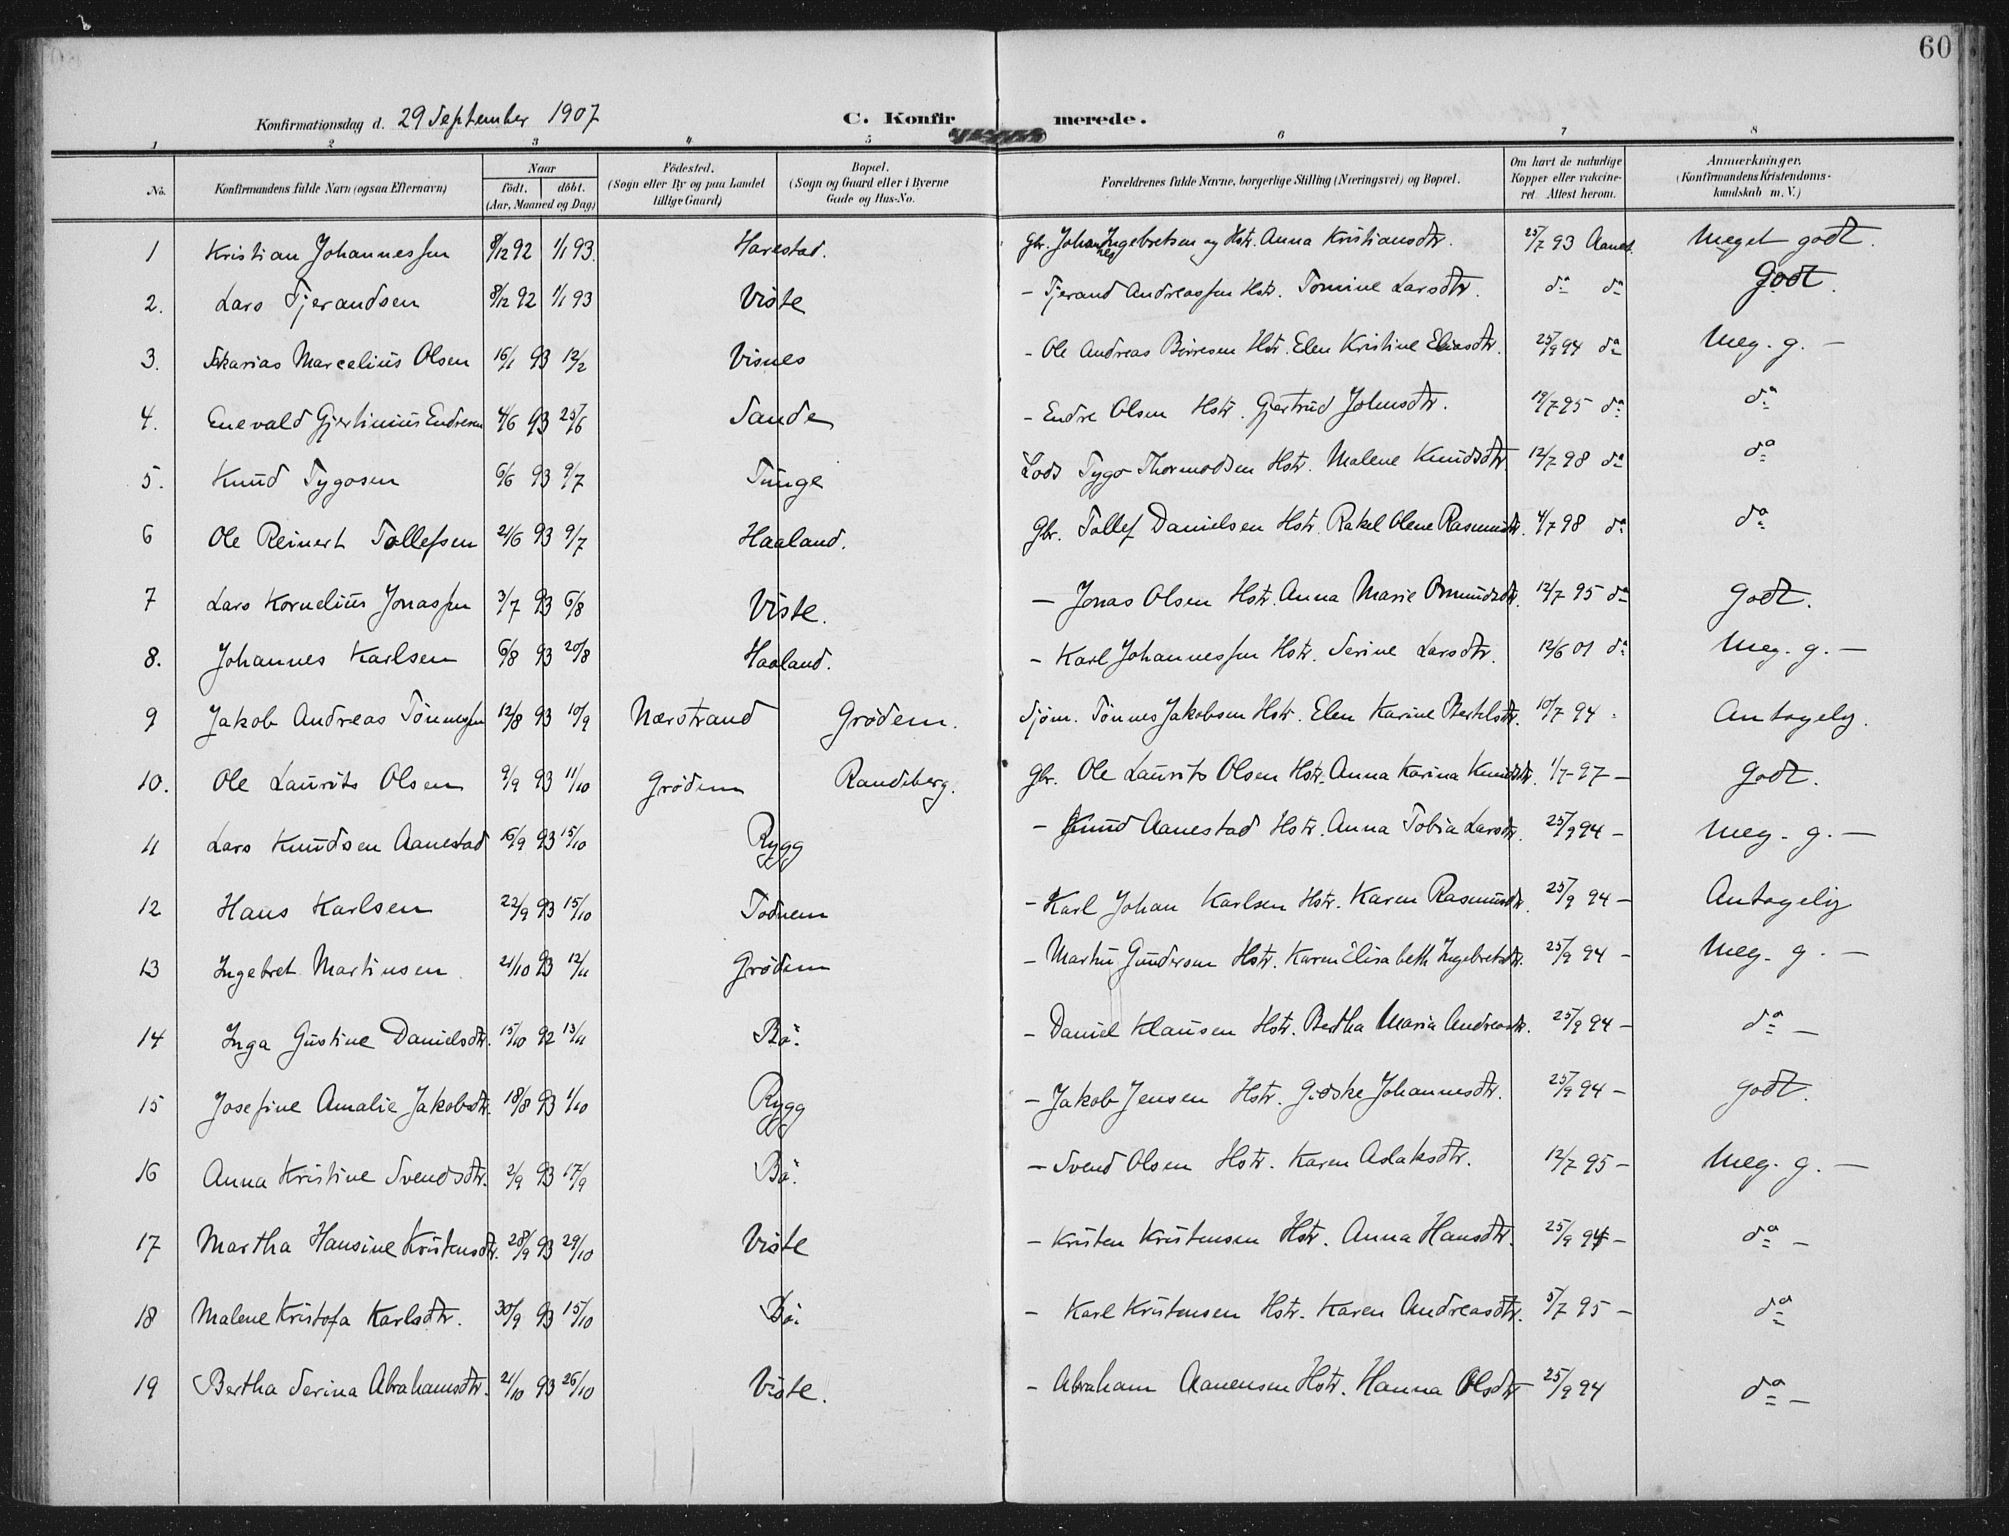 60
Konfirmationsdag d. 29 September 1907 C. Konfirmerede.
1 2 3 4 5 6 7 8
No. Konfirmandens fulde Navn (ogsaa Efternavn) Naar født. døbt. (Aar, Maaned og Dag) Fødested. (Sogn eller By og paa Landet tillige Gaard) Bopæl. (Sogn og Gaard eller i Byerne Gade og Hus-No. Forældrenes fulde Navne, borgerlige Stilling (Næringsvei) og Bopæl. Om havt de naturlige Kopper eller vakcineret. Attest herom. Anmærkninger. (Konfirmandens Kristendomskundskab m. V.)
1 Kristian Johannessen 8/12 92 1/1 93. Harestad. Gbr. Johannes Ingebretsen og Hstr. Anna Kristiansdtr. 25/7 93 Aanest. Meget godt.
2. Lars Tjerandsen 8/12 92 1/1 93 Viste - Tjerand Andreassen Hstr. Tomine Larsdtr. do do Godt.
3. Sakarias Marcelius Olsen 16/1 93 12/2 Visnes - Ole Andreas Børresen Hstr. Elen Kristine Eliasdtr. 25/9 94 do Meg. g. -
4. Enevald Gjertinius Endresen 4/6 93 25/6 Sande - Endre Olsen Hstr. Gjertrud Johnsdtr. 19/7 95 do do
5. Knud Tygosen 6/6 93 9/7 Tunge Lods Tygo Thormodsen Hstr. Malene Knudsdtr 12/7 98 do do
6 Ole Reinert Tollefsen 21/6 93 9/7 Haaland. Gbr. Tollef Danielsen Hstr. Rakel Olene Rasmusdtr. 4/7 98 do do
7 Lars Kornelius Jonassen 3/7 93 6/8 Viste. - Jonas Olsen Hstr. Anna Marie Omundsdtr. 12/7 95 do godt.
8. Johannes Karlsen 6/8 93 20/8 Haaland. - Karl Johannessen Hstr. Serine Larsdtr. 12/6 01 do Meg. g. -
9 Jakob Andreas Tønnessen 12/8 93 10/9 Nærstrand Grødem. Sjøm. Tønnes Jakobsen Hstr. Elen Karine Bertelsdtr. 10/7 94 Antagelig.
10. Ole Laurits Olsen 9/9 93 11/10 Grødem Randeberg. Gbr. Ole Laurits Olsen Hstr. Anna Karina Knudsdtr. 1/7 97 - Godt.
11 Lars Knudsen Aanestad 16/9 93 15/10 Rygg - Knud Aanestad Hstr. Anna Tobia Larsdtr. 25/9 94 - Meg. g. -
12 Hans Karlsen 22/9 93 15/10 Todnem - Karl Johan Karlsen Hstr. Karen Rasmusdtr. 25/9 94 - Antagelig
13 Ingebret Martinsen 21/10 93 12/11 Grødem - Martin Gundersen Hstr. Karen Elisabeth Ingebretsdtr. 25/9 94 - Meg. g. -
14 Inga Gustine Danielsdtr. 15/10 92 13/11 Bø. - Daniel Klausen Hstr. Bertha Maria Andreasdtr. 25/9 94 - do -
15 Josefine Amalie Jakobsdtr. 18/8 93 1/10 Rygg - Jakob Jensen Hstr. Gidske Johannesdtr. 25/9 94 - godt.
16 Anna Kristine Svendsdtr. 2/9 93 17/9 Bø. - Svend Olsen Hstr. Karen Aslaksdtr. 12/7 95 - Meg. g. -
17 Martha Hansine Kristensdtr. 28/9 93 29/10 Viste - Kristen Kristensen Hstr. Anna Hansdtr. 25/9 94 - do -
18 Malene Kristofa Karlsdtr. 30/9 93 15/10 Bø. - Karl Kristensen Hstr. Karen Andreasdtr. 5/7 95 - do
19 Bertha Serina Abrahamsdtr. 21/10 93 26/10 Viste. - Abraham Aanensen Hstr. Hanna Olsdtr 25/9 94 do -